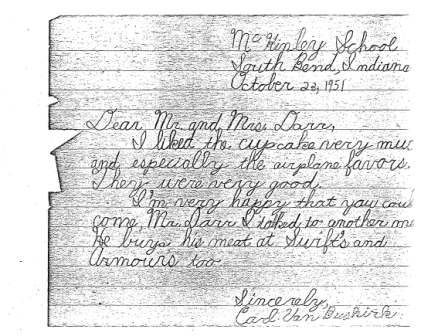 McKinley School
South Bend, Indiana
October 23, 1951
Dear Mr. and Mrs. Darr,
I liked the cupcake very muc
and especially the airplane favors.
They were very good.
I'm very happy that you coul
come, Mr. Darr I talked to another m
he buys his meat at Swift's and
Armour's too
Sincerely,
Carl Van Buskirk